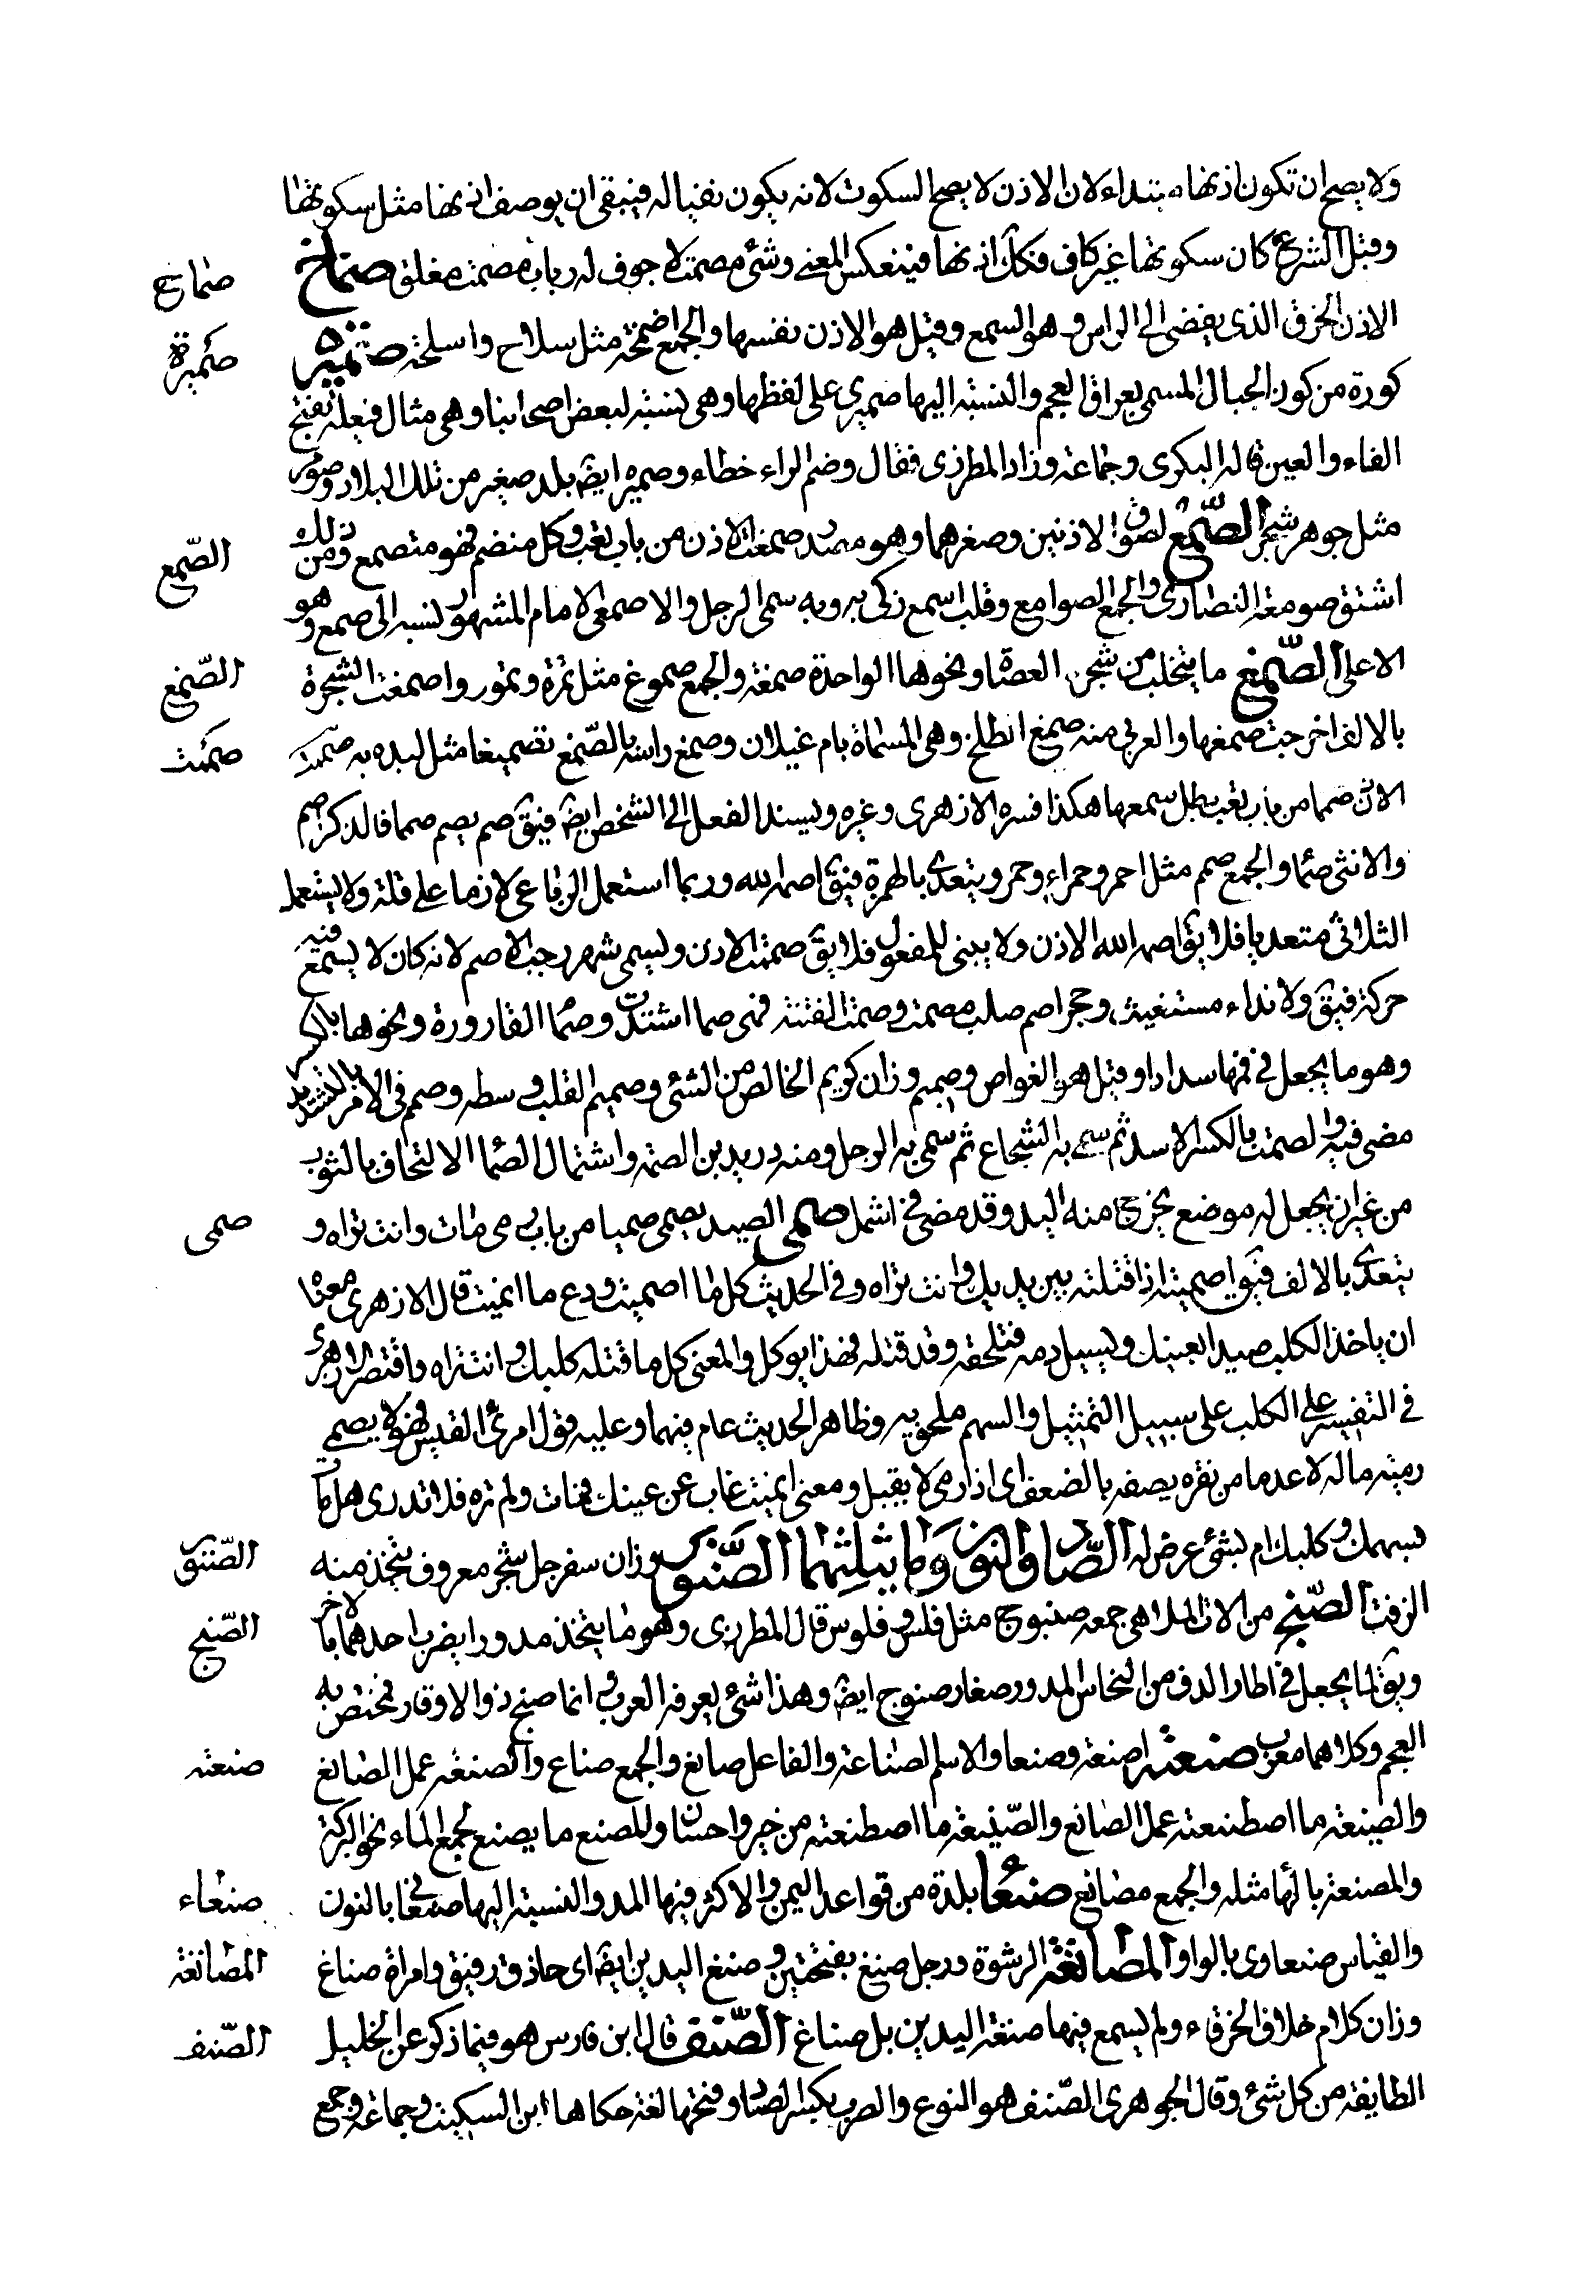 ولا يصح ان تكون اذنها مبتداء لان الاذن لا يصح السكوت لانه يكون نفيا له فيبقى ان يوصف اذنها مثل سكوتها
وقبل الشرع كان سكوتها غير كاف فكذا اذنها فينعكس المعنى وشئ مصمت لا جوف له وباب مصمت مغلق صماخ
صماخ
الاذن الخرق الذى يفضى الى الراس وهو السمع وقيل هو الاذن نفسها والجمع اصمخة مثل سلاح واسلحة صيمرة
صيمرة
كورة من كور الجبال المسمى بعراق العجم والنسبة اليها صيمرى على لفظها وهى نسبة لبعض اصحابنا وهى مثال فيعلة بفتح
الفاء والعين قاله البكرى وجماعة وزاد المطرزى فقال وضم الراء خطاء وصيمرة ايضا بلد صغير من تلك البلاد وصومر
مثل جوهر شجر الصمع لصوق الاذنين وصغرهما وهو مصدر صمعت الاذن من باب تعب وكل منضم فهو متصمع ومن ذلك
الصمع
اشتق صومعة النصارى والجمع الصوامع وقلب اصمع زكى به وبه سمى الرجل والاصمعى الامام المشهور نسبة الى اصمع وهو
الاعلى الصمغ ما يتحلب من شجر العضاه ونحوها الواحدة صمغة والجمع صموغ مثل تمرة وتمور واصمغت الشجرة
الصمغ
بالالف اخرجت صمغها والعربى منه صمغ الطلح وهى المسماة بام غيلان وصمغ راسه بالصمغ تصميغا مثل لبده به صمت
صمت
الاذن صمما من باب تعب بطل سمعها هكذا فسره الازهرى وغيره ويسند الفعل الى الشخص ايضا فيق صم يصم صمما فالذكر اصم
والانثى صما والجمع صم مثل احمر وحمراء وحمر ويتعدى بالهمزة فيق اصمه الله وربما استعمل الرباعى لازما على قلة ولا يستعمل
الثلاثى متعديا فلا يق اصم الله الاذن ولا يبنى للمفعول فلا يق صمت الاذن ويسمى شهر رجب الاصم لانه كان لا يسمع فيه
حركة قتيق ولا نداء مستغيث وحجر اصم صلب مصمت وصمت الفتنة فهى صما اشتدت وصما القارورة ونحوها بالكسر
وهو ما يجعل فى فمها سدادا وقيل هو الغواص وصميم وزان كريم الخالص من الشئ وصميم القلب وسطه وصمم فى الامر بالتشديد
مضى فيه والصمة بالكسر الاسد ثم سمى به الشجاع ثم سمى به الرجل ومنه دريد بن الصمة واشتمال الصما الالتحاف بالثوب
من غير ان يجعل له موضع يخرج منه اليد وقد مضى فى اشمل صمى الصيد يصمى صميا من باب رمى مات وانت تراه و
صمى
يتعدى بالالف فيق اصميته اذا قتلته بين يديك وانت تراه وفى الحديث كل ما اصميت ودع ما انميت قال الازهرى معناه
ان ياخذ الكلب صيدا بعينك ويسيل دمه فتلحقه وقد قتله فهذا يوكل والمعنى كل ما قتله كلبك وانت تراه واقتصر الازهرى
فى التفسير على الكلب على سبيل التمثيل والسهم ملحق به وظاهر الحديث عام فيهما وعليه قول امرئ القيس فهو لا يصمى
رميته ماله لا عد ما من نفره يصفه بالضعف اى اذا رمى لا يقتل ومعنى انميت غاب عن عينك فمات ولم تره فلا تدرى هل مات
بسهمك وكلبك ام بشئ عرض له الصاد والنون وما يثلثهما الصنوبر وزان سفرجل شجر معروف يتخذ منه
الصنوبر
الزفت الصنج من الات الملاهى جمعه صنوج مثل فلس وفلوس قال المطرزى وهو ما يتخذ مدورا يضرب احدهما بالاخر
الصنج
ويق لما يجعل فى اطار الدف من النحاس المدور صغار صنوج ايضا وهذا شئ يعرفه العرب وانما صنج ذو الاوتار فمختص به
العجم وكلاهما معرب صنعته اصنعه صنعا والاسم الصناعة والفاعل صانع والجمع صناع والصنعة عمل الصانع
صنعته
والصنيعة ما اصطنعته عمل الصانع والصنيعة ما اصطنعته من خير واحسان وللصنع ما يصنع لجمع الماء نحو البركة
والمصنعة بالهاء مثله والجمع مصانع صنعا بلدة من قواعد اليمن والاكثر فيها المد والنسبة اليها صنعانى بالنون
صنعاء
والقياس صنعاوى بالواو المصانعة الرشوة ورجل صنع بفتحتين وصنع اليدين ايضا اى حاذق رفيق وامراة صناع
المصانعة
وزان كلام خلاف الخرقاء ولم يسمع فيها صنعة اليدين بل صناع الصنف قال ابن فارس هو فيما ذكر عن الخليل
الصنف
الطايفة من كل شئ وقال الجوهرى الصنف هو النوع والضرب بكسر الصاد وفتحها لغة حكاها ابن السكيت وجماعة وجمع